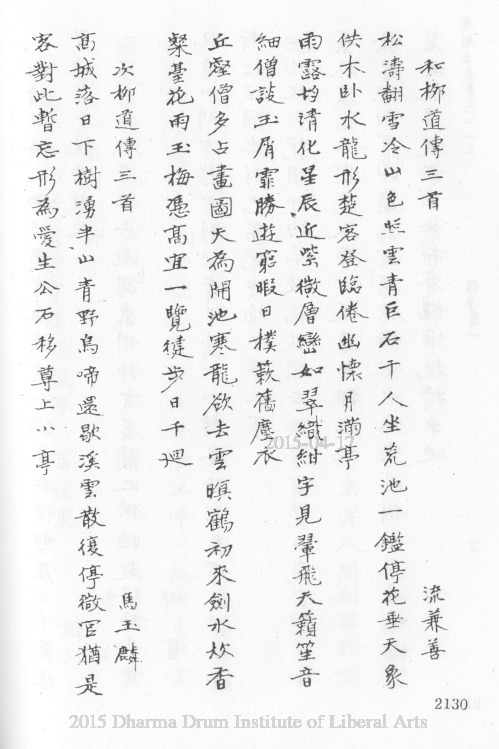 和栁道傳三首
流兼善
松濤翻雪冷山色照雲青巨石千人坐荒池一鑑停花垂天象
供木卧水龍形楚客登臨倦幽懷月滿亭
雨露均清化星辰近紫微層巒如翠織紺宇見翬飛天籟笙音
細僧談玉屑霏勝遊窮暇日樸蔌舊塵衣
丘壑僧多占畫圖天為開池寒龍欲去雲暝鶴初來劍水炊香
粲臺花雨玉梅憑高宜一覽徒步日千迴
次栁道傳三首
馬玉麟
高城落日下樹湧半山青野鳥啼還歇溪雲散復停微官猶是
客對此暫忘形為愛生公石移尊上小亭
2130
2015-04-17
2015 Dharma Drum Institute of Liberal Arts